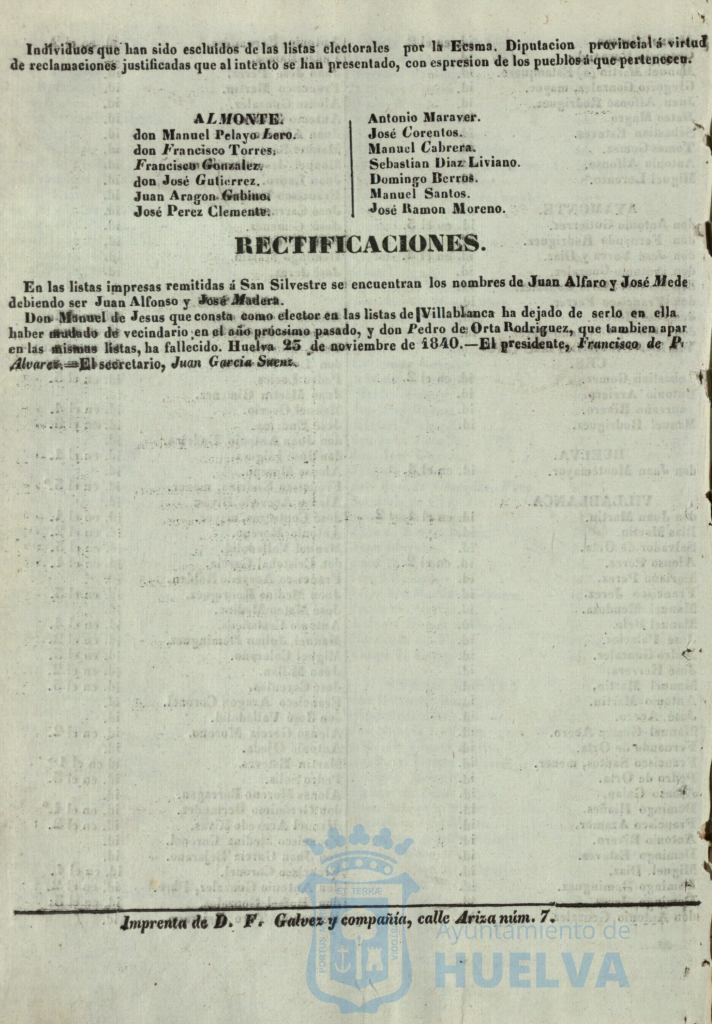 Individuos que han sido escluidos de las listas electorales por la Ecsma. Diputacion provincial á virtud
de reclamaciones justificadas que al intento se han presentado, con espresion de los pueblos á que pertenecen.
ALMONTE.
don Manuel Pelayo Lero.
don Francisco Torres.
Francisco Gonzalez.
don José Gutierrez.
Juan Aragon Gabino.
José Perez Clemente.
Antonio Maraver.
José Corentos.
Manuel Cabrera.
Sebastian Diaz Liviano.
Domingo Berros.
Manuel Santos.
José Ramon Moreno.
RECTIFICACIONES.
En las listas impresas remitidas á San Silvestre se encuentran los nombres de Juan Alfaro y José Mede
debiendo ser Juan Alfonso y José Madera.
Don Manuel de Jesus que consta como elector en las listas de Villablanca ha dejado de serlo en ella
haber mudado de vecindario en el año prócsimo pasado, y don Pedro de Orta Rodriguez, que tambien apar
en las mismas listas, ha fallecido. Huelva 25 de noviembre de 1840.—El presidente, Francisco de P.
Alvarez.—El secretario, Juan Garcia Saenz.
Imprenta de D. F. Galvez y compañía, calle Ariza núm. 7.
Ayuntamiento de
HUELVA